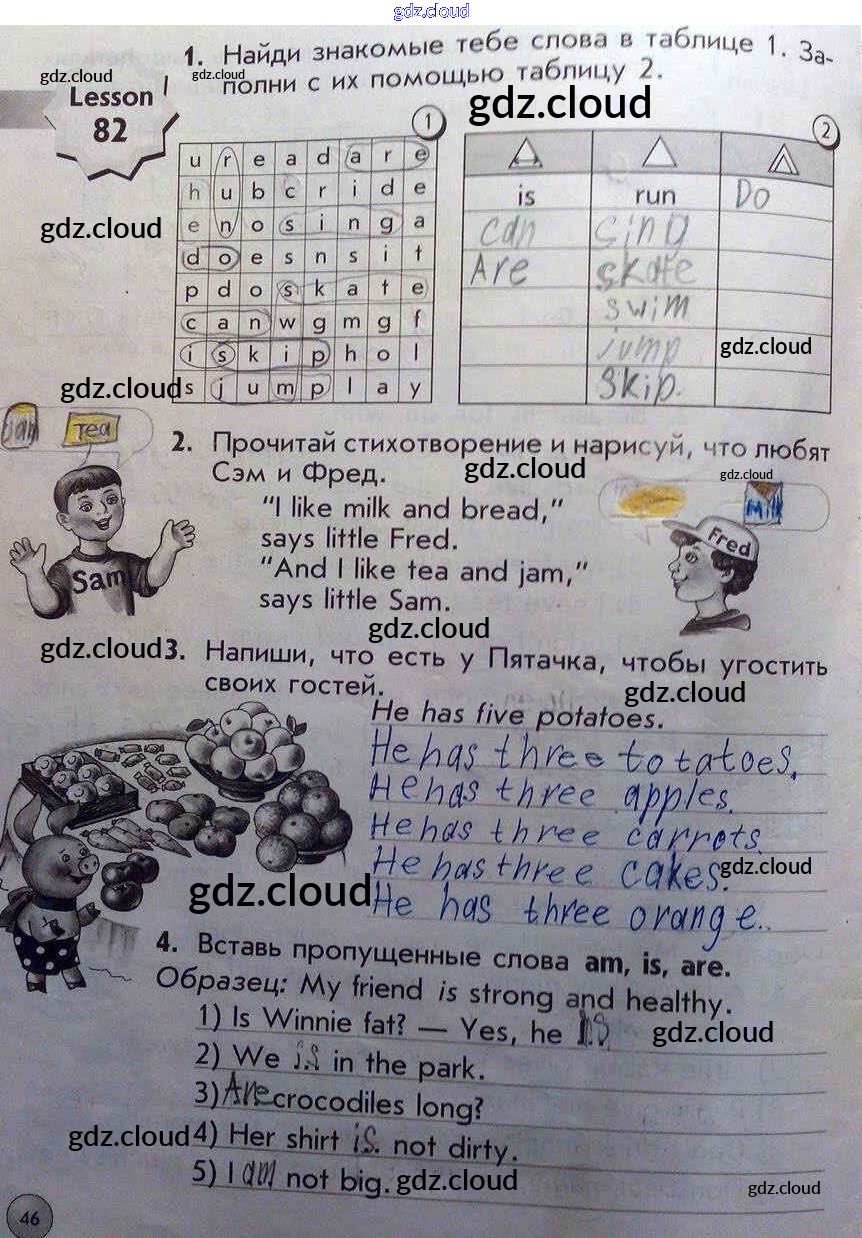 gdz.cloud
1. Найди знакомые тебе слова в таблице 1. За-
полни с их помощью таблицу 2.
gdz.cloud
gdz.cloud
gdz.cloud
Lesson
82
1
2
u r e a d a r e
h u b c r i d e
e n o s i n g a
d o e s n s i t
p d o s k a t e
c a n w g m g f
i s k i p h o l
s j u m p l a y
is run Do
can sing
Are skate
swim
jump
Skip.
gdz.cloud
gdz.cloud
gdz.cloud
Jam Tea
2. Прочитай стихотворение и нарисуй, что любят
Сэм и Фред.
gdz.cloud
gdz.cloud
"I like milk and bread,"
says little Fred.
"And I like tea and jam,"
says little Sam.
Milk
Fred
Sam
gdz.cloud
gdz.cloud
3. Напиши, что есть у Пятачка, чтобы угостить
своих гостей.
gdz.cloud
He has five potatoes.
He has three totatoes.
He has three apples.
He has three carrots.
He has three cakes.
gdz.cloud
He has three orange.
gdz.cloud
4. Вставь пропущенные слова am, is, are.
Образец: My friend is strong and healthy.
1) Is Winnie fat? — Yes, he is
gdz.cloud
2) We is in the park.
3) Are crocodiles long?
4) Her shirt is. not dirty.
gdz.cloud
5) I am not big.
gdz.cloud
gdz.cloud
46